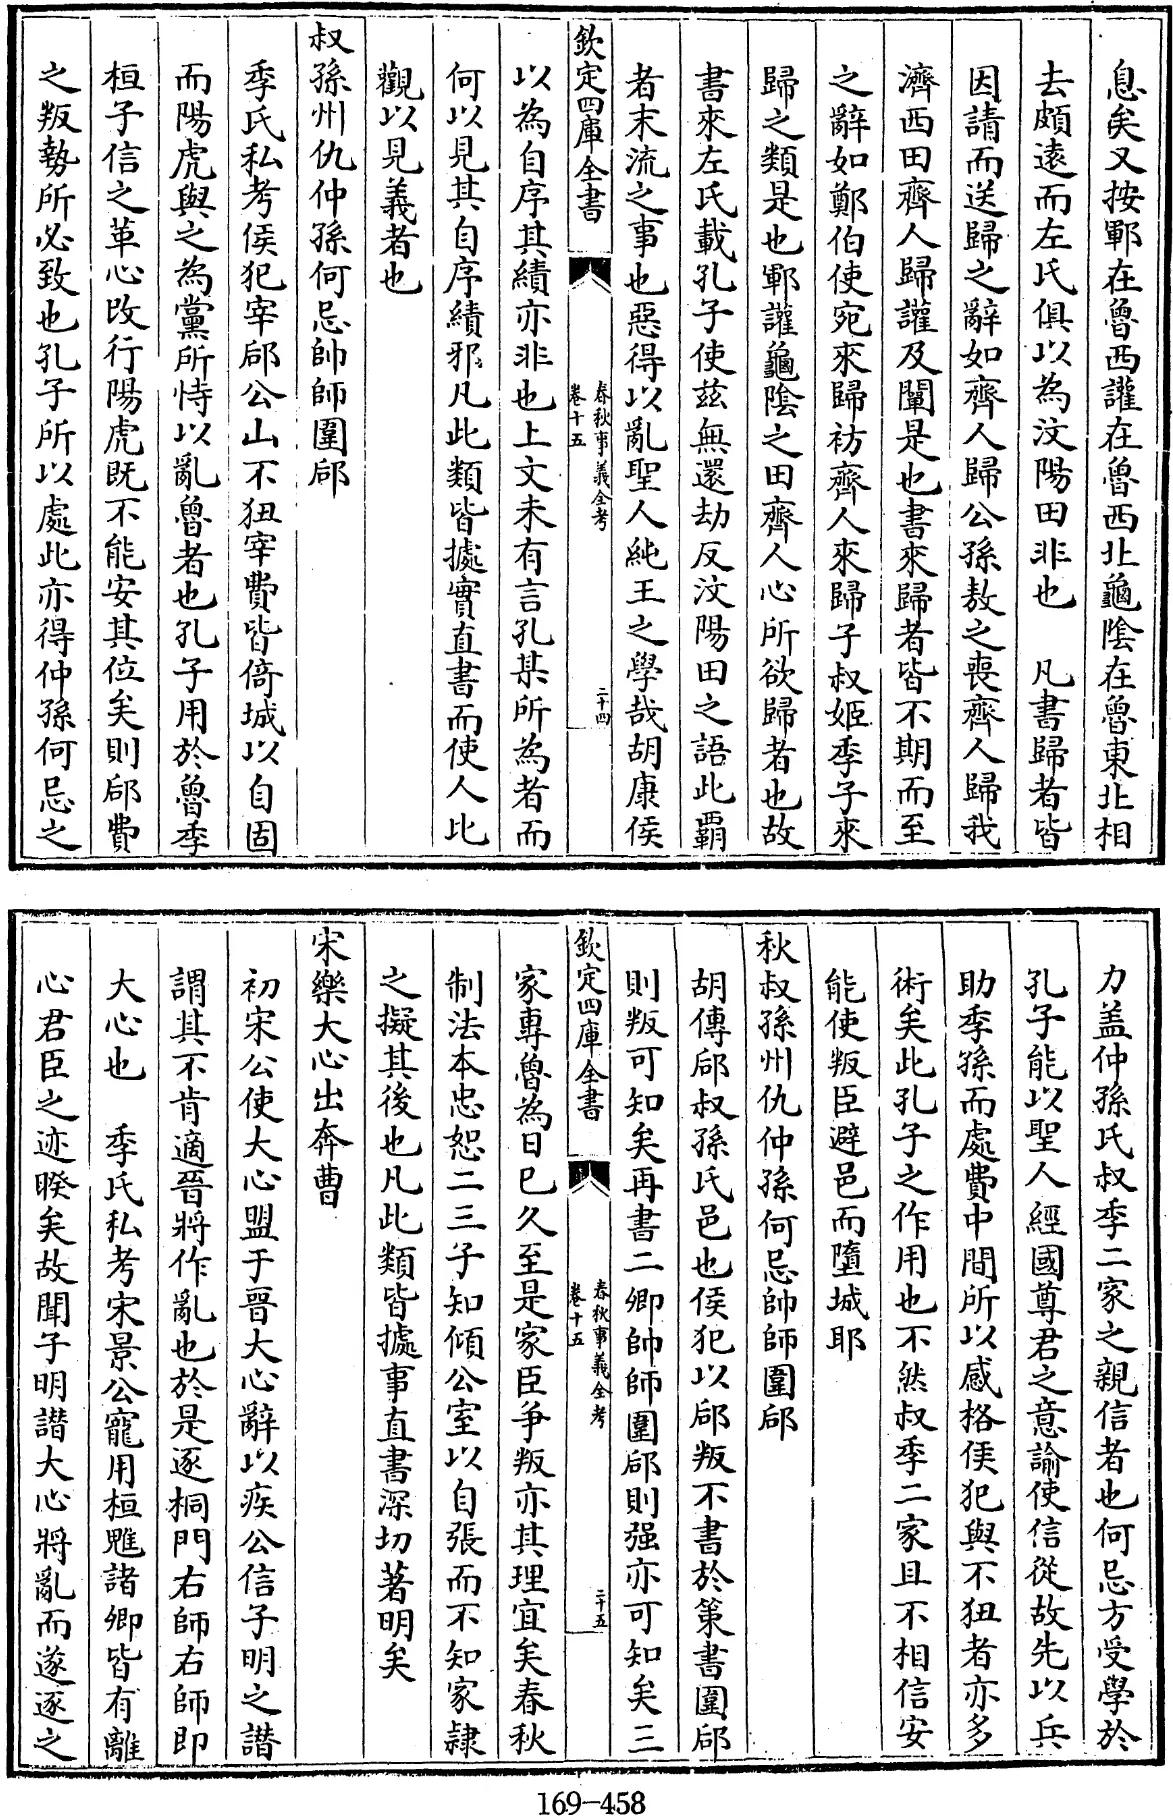 息矣又按鄆在魯西讙在魯西北龜隂在魯東北相
去頗遠而左氏俱以為汶陽田非也　凡書歸者皆
因請而送歸之辭如齊人歸公孫敖之喪齊人歸我
濟西田齊人歸讙及闡是也書來歸者皆不期而至
之辭如鄭伯使宛來歸祊齊人來歸子叔姬季子來
歸之類是也鄆讙龜隂之田齊人心所欲歸者也故
書來左氏載孔子使茲無還劫反汶陽田之語此霸
者末流之事也惡得以亂聖人純王之學哉胡康侯
欽定四庫全書
春秋事義全考
卷十五
二十四
以為自序其績亦非也上文未有言孔某所為者而
何以見其自序績邪凡此類皆據實直書而使人比
觀以見義者也
叔孫州仇仲孫何忌帥師圍郈
季氏私考侯犯宰郈公山不狃宰費皆倚城以自固
而陽虎與之為黨所恃以亂魯者也孔子用於魯季
桓子信之革心改行陽虎既不能安其位矣則郈費
之叛勢所必致也孔子所以處此亦得仲孫何忌之
力盖仲孫氏叔季二家之親信者也何忌方受學於
孔子能以聖人經國尊君之意諭使信從故先以兵
助季孫而處費中間所以感格侯犯與不狃者亦多
術矣此孔子之作用也不然叔季二家且不相信安
能使叛臣避邑而墮城耶
秋叔孫州仇仲孫何忌帥師圍郈
胡傳郈叔孫氏邑也侯犯以郈叛不書於策書圍郈
則叛可知矣再書二卿帥師圍郈則强亦可知矣三
欽定四庫全書
春秋事義全考
卷十五
二十五
家専魯為日已久至是家臣爭叛亦其理宜矣春秋
制法本忠恕二三子知傾公室以自張而不知家隷
之擬其後也凡此類皆據事直書深切著明矣
宋樂大心出奔曹
初宋公使大心盟于晉大心辭以疾公信子明之譖
謂其不肯適晉將作亂也於是逐桐門右師右師即
大心也　季氏私考宋景公寵用桓魋諸卿皆有離
心君臣之迹暌矣故聞子明譖大心將亂而遂逐之
169-458